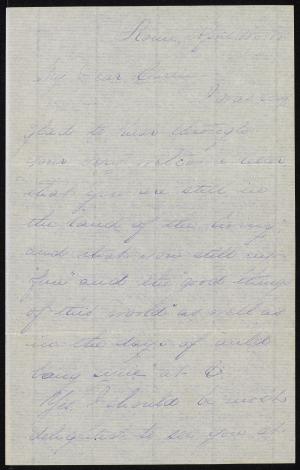 My Dear
I was very
glad to hear through
your very welcome
that you are still in
"the land of the living"
and that you still enjoy
"fun" and the "good things
of this world" as well as
in the days of auld
lang sine at C
Yes I should be most
delighted to see you at